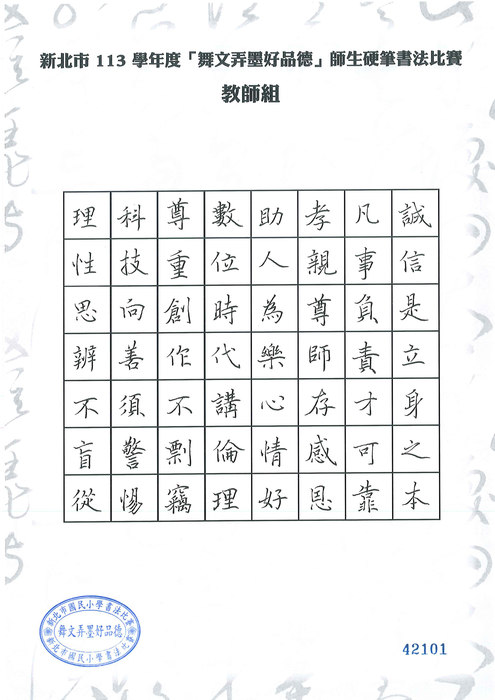 新北市 113 學年度「舞文弄墨好品德」師生硬筆書法比賽
教師組
誠信是立身之本
凡事負責才可靠
孝親尊師存感恩
助人為樂心情好
數位時代講倫理
尊重創作不剽竊
科技向善須警惕
理性思辨不盲從
新北市國民小學書法比賽
舞文弄墨好品德
新北市國民小學書法比賽
42101